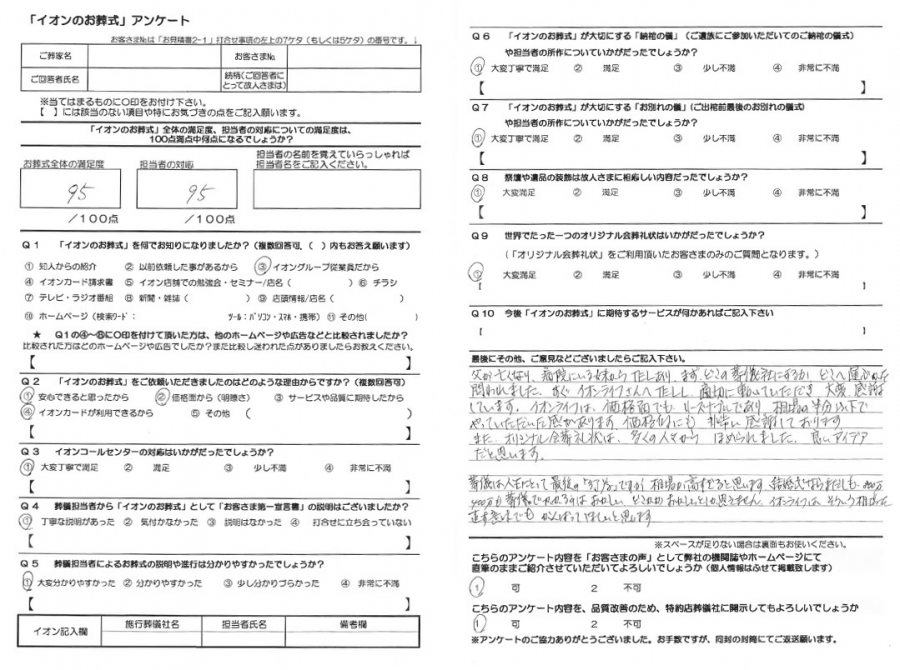 「イオンのお葬式」アンケート
お客さま№は「お見積書2-1」打合せ事項の左上の7ケタ（もしくは5ケタ）の番号です。↓
ご葬家名 お客さま№
ご回答者氏名 続柄(ご回答者にとって故人さまは)
※当てはまるものに〇印をお付け下さい。
【 】には該当のない項目や特にお気づきの点をご記入願います。
「イオンのお葬式」全体の満足度、担当者の対応についての満足度は、
100点満点中何点になるでしょうか？
お葬式全体の満足度 担当者の対応 担当者の名前を覚えていらっしゃれば
担当者名をご記入ください。
95 95
／100点 ／100点
Q1 「イオンのお葬式」を何でお知りになりましたか？（複数回答可、( )内もお答え願います）
① 知人からの紹介 ② 以前依頼した事があるから ③ イオングループ従業員だから
④ イオンカード請求書 ⑤ イオン店舗での勉強会・セミナー/店名 ( ) ⑥ チラシ
⑦ テレビ・ラジオ番組 ⑧ 新聞・雑誌 ( ) ⑨ 店頭情報/店名 ( )
⑩ ホームページ（検索ワード： ツール：パソコン・スマホ・携帯） ⑪ その他( )
★ Q1の④～⑧に〇印を付けて頂いた方は、他のホームページや広告などと比較されましたか？
比較された方はどのホームページや広告でしたか？また比較し迷われた点がありましたらお教えください。
【 】
Q2 「イオンのお葬式」をご依頼いただきましたのはどのような理由からですか？（複数回答可）
① 安心できると思ったから ② 価格面から（明瞭さ） ③ サービスや品質に期待したから
④ イオンカードが利用できるから ⑤ その他 ( )
【 】
Q3 イオンコールセンターの対応はいかがだったでしょうか？
① 大変丁寧で満足 ② 満足 ③ 少し不満 ④ 非常に不満
【 】
Q4 葬儀担当者から「イオンのお葬式」として「お客さま第一宣言書」の説明はございましたか？
① 丁寧な説明があった ② 気付かなかった ③ 説明はなかった ④ 打合せに立ち会っていない
【 】
Q5 葬儀担当者によるお葬式の説明や進行は分かりやすかったでしょうか？
① 大変分かりやすかった ② 分かりやすかった ③ 少し分かりづらかった ④ 非常に不満
【 】
イオン記入欄 施行葬儀社名 担当者氏名 備考欄
Q6 「イオンのお葬式」が大切にする「納棺の儀」（ご遺族にご参加いただいてのご納棺の儀式）
や担当者の所作についていかがだったでしょうか？
① 大変丁寧で満足 ② 満足 ③ 少し不満 ④ 非常に不満
【 】
Q7 「イオンのお葬式」が大切にする「お別れの儀」（ご出棺前最後のお別れの儀式）
や担当者の所作についていかがだったでしょうか？
① 大変丁寧で満足 ② 満足 ③ 少し不満 ④ 非常に不満
【 】
Q8 祭壇や遺品の装飾は故人さまに相応しい内容だったでしょうか？
① 大変満足 ② 満足 ③ 少し不満 ④ 非常に不満
【 】
Q9 世界でたった一つのオリジナル会葬礼状はいかがだったでしょうか？
（「オリジナル会葬礼状」をご利用頂いたお客さまのみのご質問となります。）
① 大変満足 ② 満足 ③ 少し不満 ④ 非常に不満
【 】
Q10 今後「イオンのお葬式」に期待するサービスが何かあればご記入下さい
【 】
最後にその他、ご意見などございましたらご記入下さい。
父が亡くなり、病院にいる妹から TELあり、まず、どこの葬儀社にするか どこへ運ぶのか
問われました。すぐ イオンライフさんへ TELし、適切に動いていただき 大変 感謝
しています。イオンライフは、価格面でも リーズナブルであり、相場の半分以下で
やっていただいた感があります。価格的にも 非常に 感謝しております
また、オリジナル会葬礼状は、多くの人々から ほめられました。良いアイデア
だと思います。
葬儀は人生にとって最後の ですが、相場が高すぎると思います。結婚式ならまだしも
が葬儀で はおかしい。 イオンライフは、そういう相場の
正す意味でも がんばってほしいと思います
※スペースが足りない場合は裏面もお使いください。
こちらのアンケート内容を「お客さまの声」として弊社の機関誌やホームページにて
直筆のままご紹介させていただいてよろしいでしょうか（個人情報はふせて掲載致します）
1 可 2 不可
こちらのアンケート内容を、品質改善のため、特約店葬儀社に開示してもよろしいでしょうか
1 可 2 不可
※アンケートのご協力ありがとうございました。お手数ですが、同封の封筒にてご返送願います。